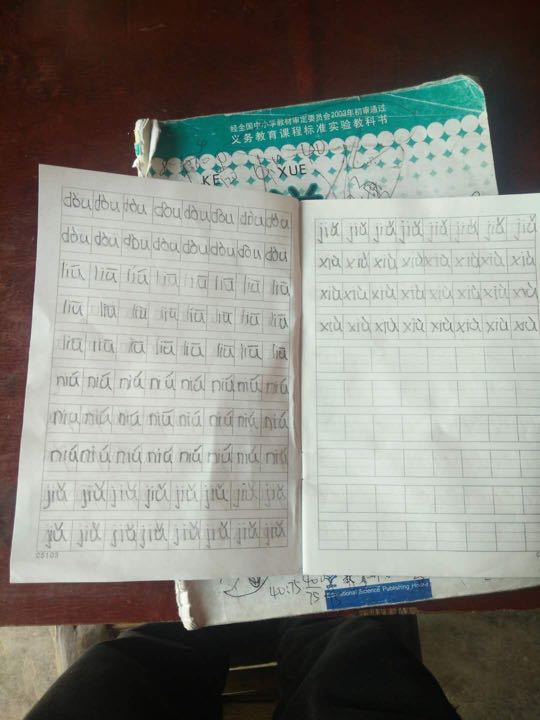 经全国中小学教材审定委员会2003年初审通过
义务教育课程标准实验教科书
KE XUE
dòu dòu dòu dòu dòu dòu dòu dòu
dòu dòu dòu dòu dòu dòu dòu dòu
liū liū liū liū liū liū liū liū
liū liū liū liū liū liū liū liū
liū liū liū liū liū liū liū liū
niú niú niú niú niú niú niú niú
niú niú niú niú niú niú niú niú
niú niú niú niú niú niú niú niú
jiǔ jiǔ jiǔ jiǔ jiǔ jiǔ jiǔ jiǔ
jiǔ jiǔ jiǔ jiǔ jiǔ jiǔ jiǔ jiǔ
05103
jiǔ jiǔ jiǔ jiǔ jiǔ jiǔ jiǔ jiǔ
xiù xiù xiù xiù xiù xiù xiù xiù
xiù xiù xiù xiù xiù xiù xiù xiù
xiù xiù xiù xiù xiù xiù xiù xiù
40:75
Science Publishing House